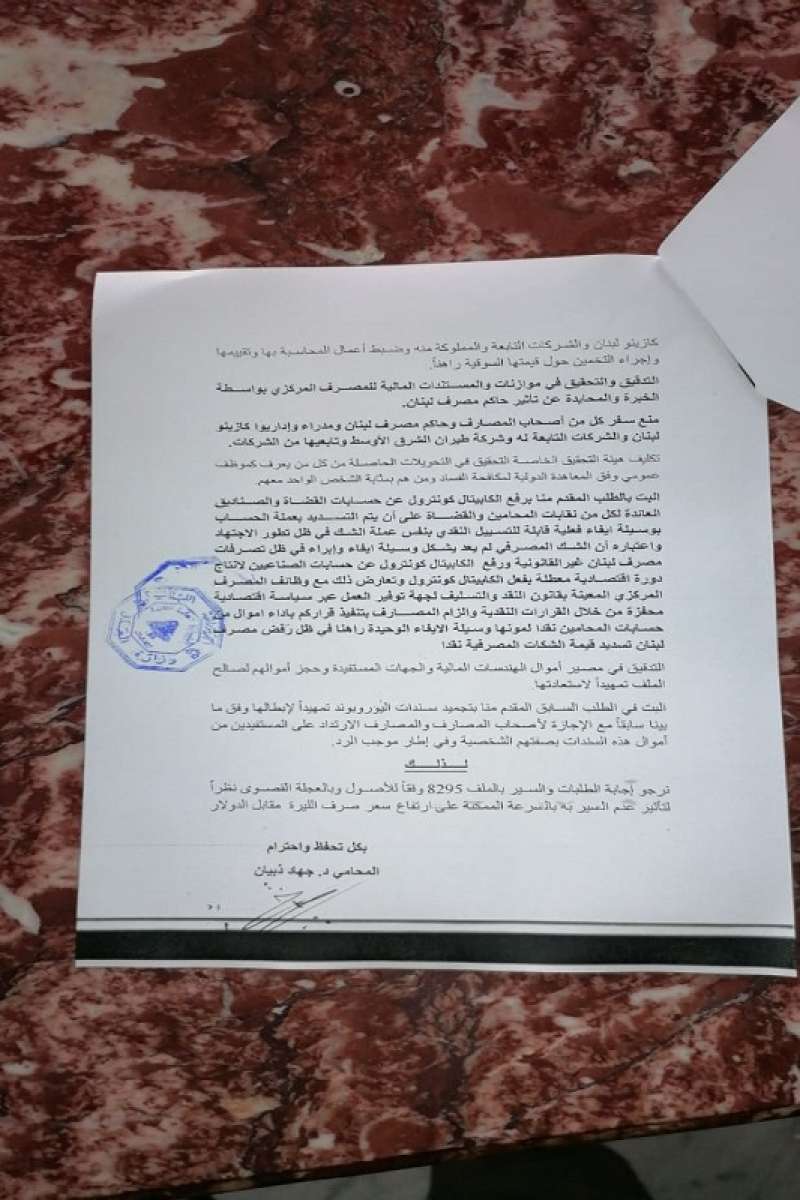 كازينو لبنان والشركات التابعة والمملوكة منه وضبط أعمال المحاسبة بها وتقييمها
وإجراء التخمين حول قيمتها السوقية راهناً.
التدقيق والتحقيق في موازنات والمستندات المالية للمصرف المركزي بواسطة
الخبرة والمحايدة عن تأثير حاكم مصرف لبنان.
منع سفر كل من أصحاب المصارف وحاكم مصرف لبنان ومدراء وإداريوا كازينو
لبنان والشركات التابعة له وشركة طيران الشرق الأوسط وتابعيها من الشركات.
تكليف هيئة التحقيق الخاصة التحقيق في التحويلات الحاصلة من كل من يعرف كموظف
عمومي وفق المعاهدة الدولية لمكافحة الفساد ومن هم بمثابة الشخص الواحد معهم.
البت بالطلب المقدم منا برفع الكابيتال كونترول عن حسابات القضاة والصناديق
العائدة لكل من نقابات المحامين والقضاة على أن يتم التسديد بعملة الحساب
بوسيلة ايفاء فعلية قابلة للتسييل النقدي بنفس عملة الشك في ظل تطور الاجتهاد
واعتباره أن الشك المصرفي لم يعد يشكل وسيلة ايفاء وإبراء في ظل تصرفات
مصرف لبنان غير القانونية ورفع الكابيتال كونترول عن حسابات الصناعيين لانتاج
دورة اقتصادية معطلة بفعل الكابيتال كونترول وتعارض ذلك مع وظائف المصرف
المركزي المعينة بقانون النقد والتسليف لجهة توفير العمل عبر سياسة اقتصادية
محفزة من خلال القرارات النقدية والزام المصارف بتنفيذ قراركم باداء اموال من
حسابات المحامين نقدا لمونها وسيلة الايفاء الوحيدة راهنا في ظل رفض مصرف
لبنان تسديد قيمة الشكات المصرفية نقدا
التدقيق في مصير أموال الهندسات المالية والجهات المستفيدة وحجز أموالهم لصالح
الملف تمهيداً لاستعادتها.
البت في الطلب السابق المقدم منا بتجميد سندات اليوروبوند تمهيداً لإبطالها وفق ما
بينا سابقاً مع الإجازة لأصحاب المصارف والمصارف الارتداد على المستفيدين من
أموال هذه السندات بصفتهم الشخصية وفي إطار موجب الرد.
لـــذلـــك
نرجو إجابة الطلبات والسير بالملف 8295 وفقاً للأصول وبالعجلة القصوى نظراً
لتأثير عدم السير به بالسرعة الممكنة على ارتفاع سعر صرف الليرة مقابل الدولار
بكل تحفظ واحترام
المحامي د. جهاد ذبيان
وزارة